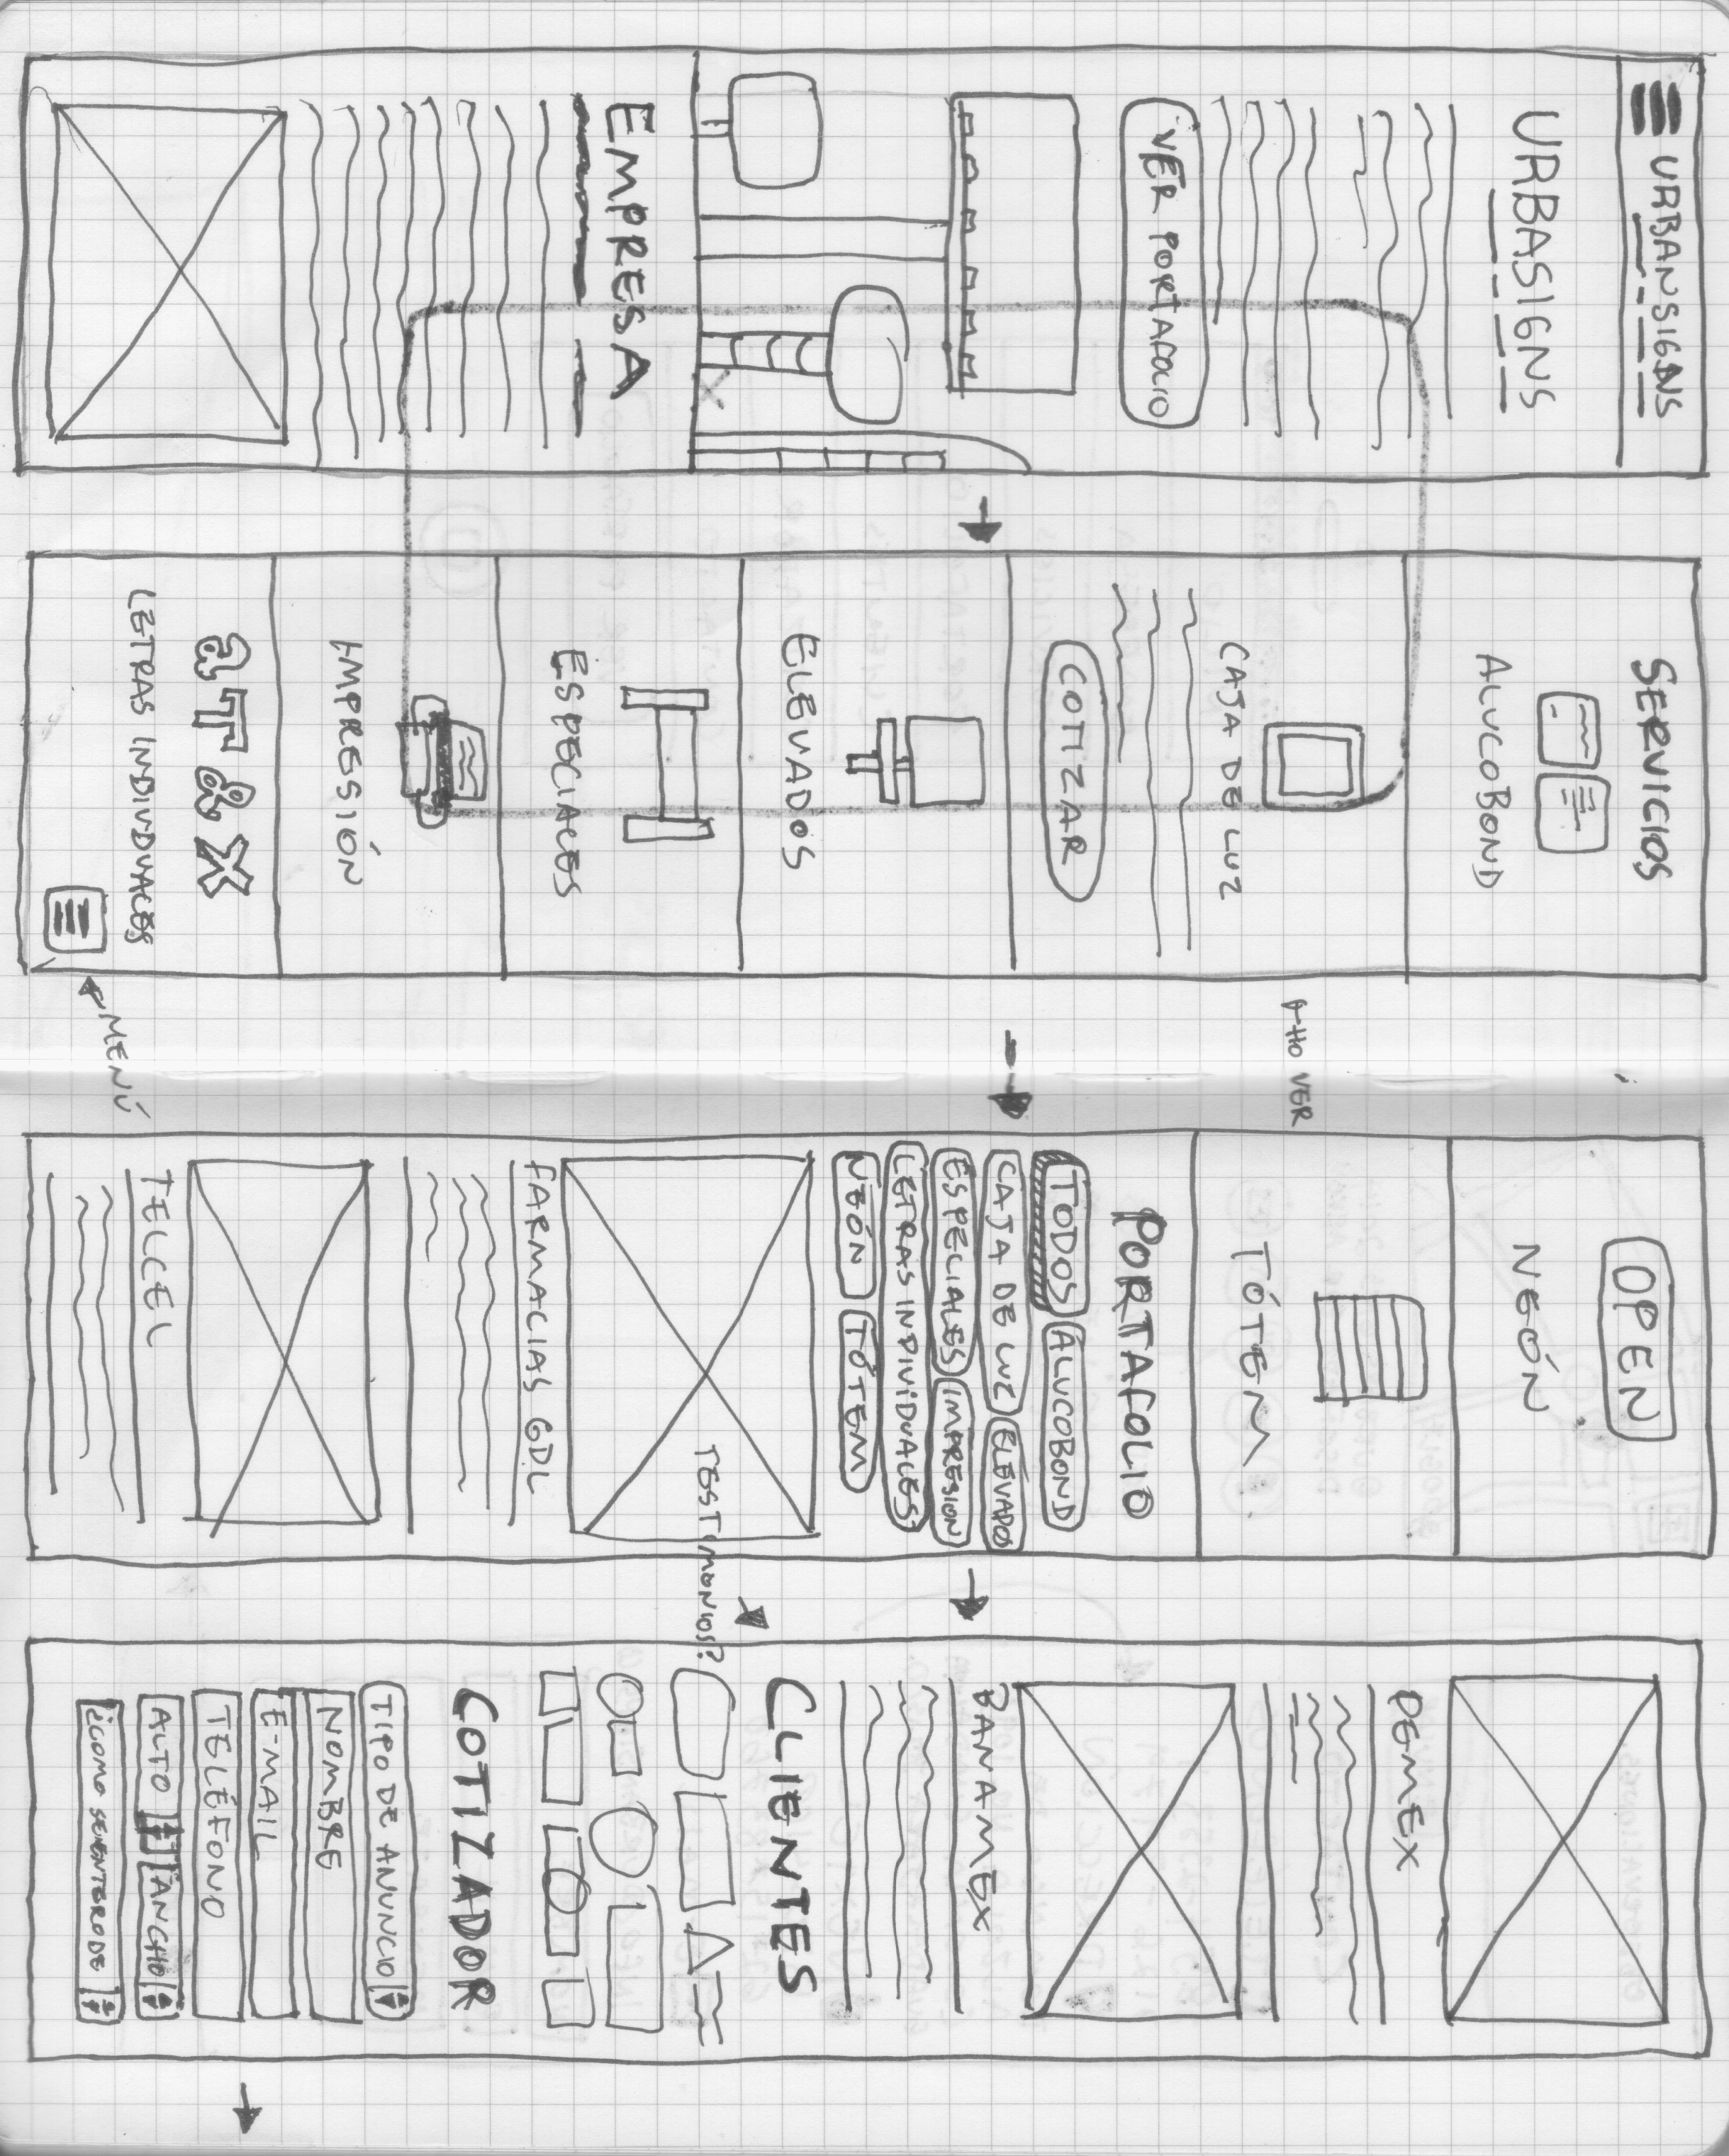 URBANSIGNS
URBASIGNS
VER PORTAFOLIO
EMPRESA
SERVICIOS
ALUCOBOND
CAJA DE LUZ
COTIZAR
ELEVADOS
ESPECIALES
IMPRESIÓN
aT&X
LETRAS INDIVIDUALES
HOVER
MENÚ
OPEN
NEÓN
TÓTEM
PORTAFOLIO
TODOS ALUCOBOND
CAJA DE LUZ ELEVADOS
ESPECIALES IMPRESION
LETRAS INDIVIDUALES
NEÓN TÓTEM
FARMACIAS GDL
TELCEL
TESTIMONIOS?
DEMEX
BANAMEX
CLIENTES
COTIZADOR
TIPO DE ANUNCIO
NOMBRE
E-MAIL
TELÉFONO
ALTO ANCHO
¿COMO SE ENTERO DE